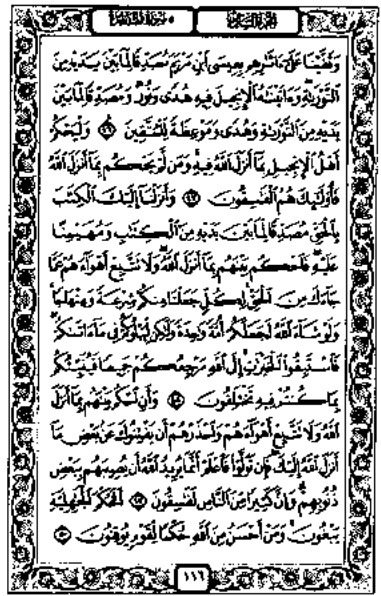 وَقَفَّيْنَا عَلَىٰٓ ءَاثَٰرِهِم بِعِيسَى ٱبْنِ مَرْيَمَ مُصَدِّقًا لِّمَا بَيْنَ يَدَيْهِ مِنَ
ٱلتَّوْرَىٰةِ وَءَاتَيْنَٰهُ ٱلْإِنجِيلَ فِيهِ هُدًى وَنُورٌ وَمُصَدِّقًا لِّمَا بَيْنَ
يَدَيْهِ مِنَ ٱلتَّوْرَىٰةِ وَهُدًى وَمَوْعِظَةً لِّلْمُتَّقِينَ ٤٦ وَلْيَحْكُمْ
أَهْلُ ٱلْإِنجِيلِ بِمَآ أَنزَلَ ٱللَّهُ فِيهِ وَمَن لَّمْ يَحْكُم بِمَآ أَنزَلَ ٱللَّهُ
فَأُو۟لَٰٓئِكَ هُمُ ٱلْفَٰسِقُونَ ٤٧ وَأَنزَلْنَآ إِلَيْكَ ٱلْكِتَٰبَ
بِٱلْحَقِّ مُصَدِّقًا لِّمَا بَيْنَ يَدَيْهِ مِنَ ٱلْكِتَٰبِ وَمُهَيْمِنًا
عَلَيْهِ فَٱحْكُم بَيْنَهُم بِمَآ أَنزَلَ ٱللَّهُ وَلَا تَتَّبِعْ أَهْوَآءَهُمْ عَمَّا
جَآءَكَ مِنَ ٱلْحَقِّ لِكُلٍّ جَعَلْنَا مِنكُمْ شِرْعَةً وَمِنْهَاجًا
وَلَوْ شَآءَ ٱللَّهُ لَجَعَلَكُمْ أُمَّةً وَٰحِدَةً وَلَٰكِن لِّيَبْلُوَكُمْ فِى مَآ ءَاتَىٰكُمْ
فَٱسْتَبِقُوا۟ ٱلْخَيْرَٰتِ إِلَى ٱللَّهِ مَرْجِعُكُمْ جَمِيعًا فَيُنَبِّئُكُم
بِمَا كُنتُمْ فِيهِ تَخْتَلِفُونَ ٤٨ وَأَنِ ٱحْكُم بَيْنَهُم بِمَآ أَنزَلَ
ٱللَّهُ وَلَا تَتَّبِعْ أَهْوَآءَهُمْ وَٱحْذَرْهُمْ أَن يَفْتِنُوكَ عَنۢ بَعْضِ مَآ
أَنزَلَ ٱللَّهُ إِلَيْكَ فَإِن تَوَلَّوْا۟ فَٱعْلَمْ أَنَّمَا يُرِيدُ ٱللَّهُ أَن يُصِيبَهُم بِبَعْضِ
ذُنُوبِهِمْ وَإِنَّ كَثِيرًا مِّنَ ٱلنَّاسِ لَفَٰسِقُونَ ٤٩ أَفَحُكْمَ ٱلْجَٰهِلِيَّةِ
يَبْغُونَ وَمَنْ أَحْسَنُ مِنَ ٱللَّهِ حُكْمًا لِّقَوْمٍ يُوقِنُونَ ٥٠
١١٦